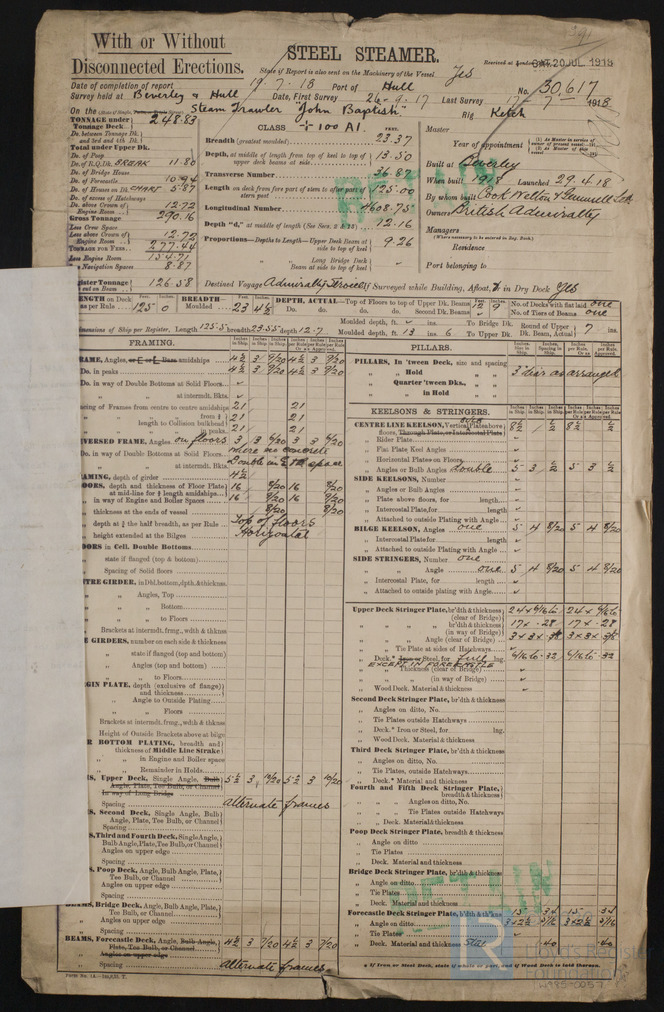 With or Without
Disconnected Erections.
STEEL STEAMER.
State if Report is also sent on the Machinery of the Vessel Yes
Received at London SAT. 20 JUL. 1918
Date of completion of report 19.7.18 Port of Hull No. 30,617
Survey held at Beverley & Hull Date, First Survey 26-9-17 Last Survey 17-7-1918
On the Steam Trawler "John Baptish" Rig Ketch
TONNAGE under Tonnage Deck 248.83
Do. between Tonnage Dk. and 3rd and 4th Dk.
Total under Upper Dk.
Do. of Poop
Do. of R.Q. Dk. BREAK 11.80
Do. of Bridge House
Do. of Forecastle 10.94
Do. of Houses on Dk. CHART 5.87
Do. of excess of Hatchways
Do. above Crown of Engine Room 12.72
Gross Tonnage 290.16
Less Crew Space
Less above Crown of Engine Room 12.72
TONNAGE FOR FEES 277.44
Less Engine Room 154.71
Navigation Spaces 8.87
Register Tonnage 126.58
CLASS + 100 A1. FEET.
Breadth (greatest moulded) 23.37
Depth, at middle of length from top of keel to top of upper deck beams at side 13.50
Transverse Number 36.87
Length on deck from fore part of stem to after part of stern post 125.00
Longitudinal Number 4608.75
Depth "d," at middle of length 12.16
Proportions—Depths to Length—Upper Deck Beam at side to top of keel 9.26
Long Bridge Deck Beam at side to top of keel
Master
Year of appointment
Built at Beverley
When built 1918 Launched 29.4.18
By whom built Cook Welton & Gemmell Ltd
Owners British Admiralty
Managers
(Where necessary to be entered in Reg. Book.)
Residence
Port belonging to
Destined Voyage Admiralty Service If Surveyed while Building, Afloat, or in Dry Dock Yes
LENGTH on Deck as per Rule 125 0 BREADTH—Moulded 23 4½ DEPTH, ACTUAL—Top of Floors to top of Upper Dk. Beams 12 9 No. of Decks with flat laid one
Do. Do. Do. Second Dk. Beams No. of Tiers of Beams one
Dimensions of Ship per Register, Length 125.5 breadth 23.55 depth 12.7 Moulded depth, ft. To Bridge Dk. Round of Upper Dk. Beam, Actual 7 ins.
Moulded depth, ft. 13 ins. 6 To Upper Dk.
FRAMING.
FRAME, Angles, amidships 4½ 3 8/20 4½ 3 8/20
Do. in peaks
Do. in way of Double Bottoms at Solid Floors
at intermdt. Bkts.
Spacing of Frames from centre to centre amidships 21 21
length to Collision bulkhead 21 21
peaks 21 21
REVERSED FRAME, Angles on floors 3 3 6/20 3 3 6/20
Do. in way of Double Bottoms at Solid Floors where no concrete
at intermdt. Bkts. Double in space
FRAMING, depth of girder 4½
FLOORS, depth and thickness of Floor Plate at mid-line for ½ length amidships 16 8/20 16 8/20
in way of Engine and Boiler Spaces 16 16
thickness at the ends of vessel 8/20 8/20
depth at ¾ the half breadth, as per Rule Top of floors
height extended at the Bilges Horizontal
FLOORS in Cell. Double Bottoms
state if flanged (top & bottom)
Spacing of Solid floors
CENTRE GIRDER, in Dbl. bottom, dpth. & thickness
Angles, Top
Bottom
to Floors
Brackets at intermdt. frmg., wdth & thkns
SIDE GIRDERS, number on each side & thickness
state if flanged (top and bottom)
Angles (top and bottom)
to Floors
MARGIN PLATE, depth (exclusive of flange) and thickness
Angle to Outside Plating
Floors
Brackets at intermdt. frmg., wdth & thkns
Height of Outside Brackets above at bilge
INNER BOTTOM PLATING, breadth and thickness of Middle Line Strake
in Engine and Boiler space
Remainder in Holds
BEAMS, Upper Deck, Single Angle, Bulb Angle, Plate, Tee Bulb, or Channel 5½ 3 10/20 5½ 3 10/20
In way of Long Bridge
Spacing alternate frames
BEAMS, Second Deck, Single Angle, Bulb Angle, Plate, Tee Bulb, or Channel
Spacing
BEAMS, Third and Fourth Deck, Single Angle, Bulb Angle, Plate, Tee Bulb, or Channel
Angles on upper edge
Spacing
BEAMS, Poop Deck, Angle, Bulb Angle, Plate, Tee Bulb, or Channel
Angles on upper edge
Spacing
BEAMS, Bridge Deck, Angle, Bulb Angle, Plate, Tee Bulb, or Channel
Angles on upper edge
Spacing
BEAMS, Forecastle Deck, Angle, Bulb Angle, Plate, Tee Bulb, or Channel 4½ 3 7/20 4½ 3 7/20
Angles on upper edge
Spacing alternate frames
PILLARS.
PILLARS, In 'tween Deck, size and spacing
Hold 3" dia as arranged
Quarter 'tween Dks.
in Hold
KEELSONS & STRINGERS.
CENTRE LINE KEELSON, Vertical Plate above floors, Through Plate, or Intercostal Plate 8½ ½ 8½ ½
Rider Plate
Flat Plate Keel Angles
Horizontal Plates on Floors
Angles or Bulb Angles double 5 3 ½ 5 3 ½
SIDE KEELSONS, Number
Angles or Bulb Angles
Plate above floors, for length
Intercostal Plate, for length
Attached to outside Plating with Angle
BILGE KEELSON, Angles one 5 4 8/20 5 4 8/20
Intercostal Plate for length
Attached to outside Plating with Angle
SIDE STRINGERS, Number one
Angle one 5 4 8/20 5 4 8/20
Intercostal Plate, for length
Attached to outside plating with Angle
Upper Deck Stringer Plate, br'dth & thickness (clear of Bridge)
br'dth & thickness (in way of Bridge) 17 x .28 17 x .28
Angle (clear of Bridge)
Tie Plate at sides of Hatchways
Deck. Iron or Steel, for full lng.
EXCEPT IN FORECASTLE
Thickness (clear of Bridge)
(in way of Bridge)
Wood Deck. Material & thickness
Second Deck Stringer Plate, br'dth & thickness
Angles on ditto, No.
Tie Plates outside Hatchways
Deck. Iron or Steel, for lng.
Wood Deck. Material & thickness
Third Deck Stringer Plate, br'dth & thickness
Angles on ditto, No.
Tie Plates, outside Hatchways
Deck. Material and thickness
Fourth and Fifth Deck Stringer Plate, breadth & thickness
Angles on ditto, No.
Tie Plates outside Hatchways
Deck. Material & thickness
Poop Deck Stringer Plate, breadth & thickness
Angle on ditto
Tie Plates
Deck. Material and thickness
Bridge Deck Stringer Plate, br'dth & thickness
Angle on ditto
Tie Plates
Deck. Material and thickness
Forecastle Deck Stringer Plate, b'dth & th'kns 15 .34 15 .34
Angle on ditto
Tie Plates
Deck. Material and thickness Steel .40 .40
If Iron or Steel Deck, state if whole or part, and if Wood Deck is laid thereon.
RETAIN
W985-0057